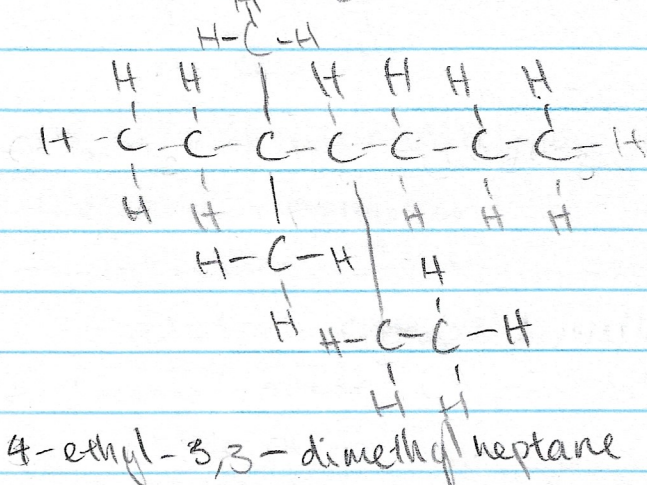 H
H-C-H
H H H H H H
H-C-C-C-C-C-C-C-H
H H H H H
H-C-H H
H H-C-C-H
H H
4-ethyl-3,3-dimethylheptane